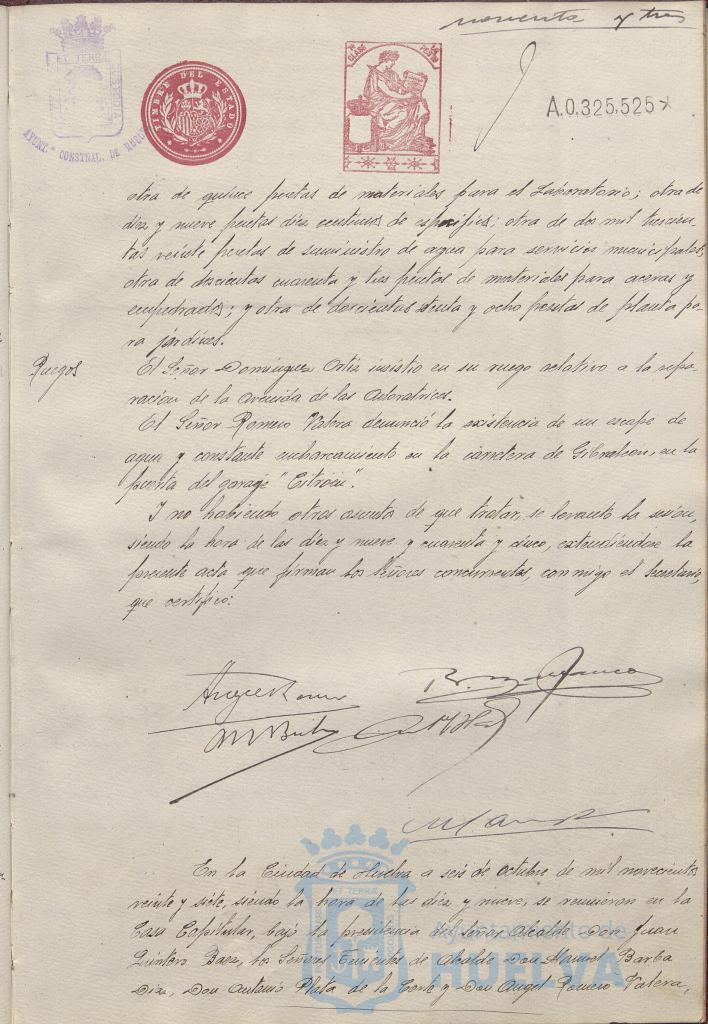 noventa y tres
ET TERRÆ
AYUNT. CONSTNAL. DE HUELVA
TIMBRE DEL ESTADO
CLASE
A.0,325,525*
otra de quince pesetas de materiales para el Laboratorio; otra de
diez y nueve pesetas diez centimos de específicos; otra de dos mil trescien
tas veinte pesetas de suministro de agua para servicios municipales;
otra de doscientas cuarenta y tres pesetas de materiales para aceras y
empedrados; y otra de doscientas setenta y ocho pesetas de planta pa
ra jardines.
Ruegos
El Señor Dominguez Ortiz insistio en su ruego relativo a la repa-
racion de la avenida de las Adoratrices.
El Señor Romero Valera denunció la existencia de un escape de
agua y constante embarcamiento en la carretera de Gibraleon, en la
puerta del garage "Citröen".
I no habiendo otros asuntos de que tratar, se levantó la sesión,
siendo la hora de las diez y nueve y cuarenta y cinco, extendiéndose la
presente acta que firman los Señores concurrentes, conmigo el Secretario,
que certifico:
En la Ciudad de Huelva a seis de Octubre de mil novecientos
veinte y siete, siendo la hora de las diez y nueve, se reunieron en la
Casa Capitular, bajo la presidencia del Señor Alcalde Don Juan
Quintero Baez, los Señores Tenientes de Alcalde Don Manuel Barba
Diaz, Don Antonio Plata de la Corte y Don Angel Romero Valera,
Ayuntamiento de
HUELVA